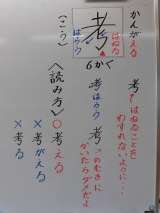 かんがえる
考
はねる
はらう
(こう)
6かく
考てはねることを
わすれないように…!
考はらう
考
つめむきに
かいたらダメだよ
〈読み方〉
○考える
×考がえる
×考る